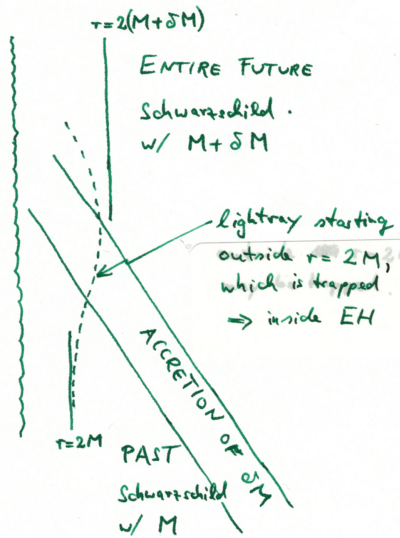 r=2(M+δM)
ENTIRE FUTURE
Schwarzschild.
w/ M+δM
lightray starting
outside r=2M,
which is trapped
⇒ inside EH
ACCRETION OF δM
r=2M
PAST
Schwarzschild
w/ M